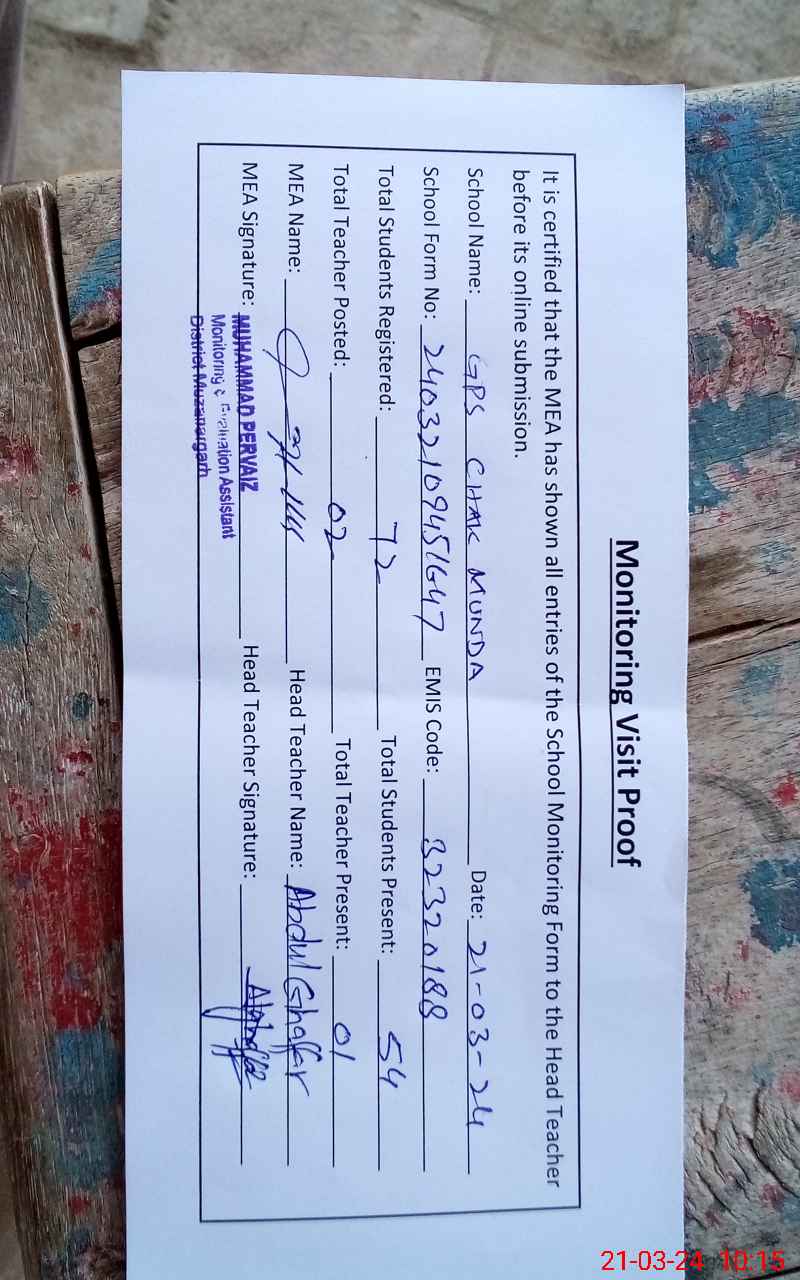 Monitoring Visit Proof
It is certified that the MEA has shown all entries of the School Monitoring Form to the Head Teacher
before its online submission.
School Name: GPS CHAK MUNDA Date: 21-03-24
School Form No: 240321094451647 EMIS Code: 32320188
Total Students Registered: 72 Total Students Present: 54
Total Teacher Posted: 02 Total Teacher Present: 01
MEA Name: Head Teacher Name: Abdul Ghaffar
MEA Signature: MUHAMMAD PERVAIZ Head Teacher Signature:
Monitoring & Evaluation Assistant
District Muzaffargarh
21-03-24 10:15